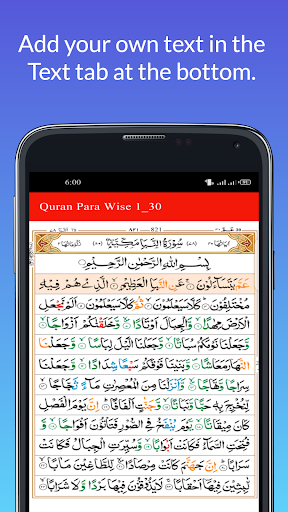 Add your own text in the
Text tab at the bottom.
6:00
Quran Para Wise 1_30
821
سُوْرَةُ النَّبَاِ مَكِّيَّةٌ
بِسْمِ اللّٰهِ الرَّحْمٰنِ الرَّحِيْمِ
عَمَّ يَتَسَآءَلُوْنَ ۝ عَنِ النَّبَاِ الْعَظِيْمِ ۝ الَّذِيْ هُمْ فِيْهِ
مُخْتَلِفُوْنَ ۝ كَلَّا سَيَعْلَمُوْنَ ۝ ثُمَّ كَلَّا سَيَعْلَمُوْنَ ۝ اَلَمْ نَجْعَلِ
الْاَرْضَ مِهٰدًا ۝ وَّالْجِبَالَ اَوْتَادًا ۝ وَّخَلَقْنٰكُمْ اَزْوَاجًا ۝
وَّجَعَلْنَا نَوْمَكُمْ سُبَاتًا ۝ وَّجَعَلْنَا الَّيْلَ لِبَاسًا ۝ وَّجَعَلْنَا
النَّهَارَ مَعَاشًا ۝ وَّبَنَيْنَا فَوْقَكُمْ سَبْعًا شِدَادًا ۝ وَّجَعَلْنَا
سِرَاجًا وَّهَّاجًا ۝ وَّاَنْزَلْنَا مِنَ الْمُعْصِرٰتِ مَآءً ثَجَّاجًا ۝
لِّنُخْرِجَ بِهٖ حَبًّا وَّنَبَاتًا ۝ وَّجَنّٰتٍ اَلْفَافًا ۝ اِنَّ يَوْمَ الْفَصْلِ
كَانَ مِيْقَاتًا ۝ يَّوْمَ يُنْفَخُ فِي الصُّوْرِ فَتَاْتُوْنَ اَفْوَاجًا ۝ وَّ
فُتِحَتِ السَّمَآءُ فَكَانَتْ اَبْوَابًا ۝ وَّسُيِّرَتِ الْجِبَالُ فَكَانَتْ
سَرَابًا ۝ اِنَّ جَهَنَّمَ كَانَتْ مِرْصَادًا ۝ لِّلطَّاغِيْنَ مَاٰبًا ۝
لّٰبِثِيْنَ فِيْهَآ اَحْقَابًا ۝ لَا يَذُوْقُوْنَ فِيْهَا بَرْدًا وَّلَا شَرَابًا ۝